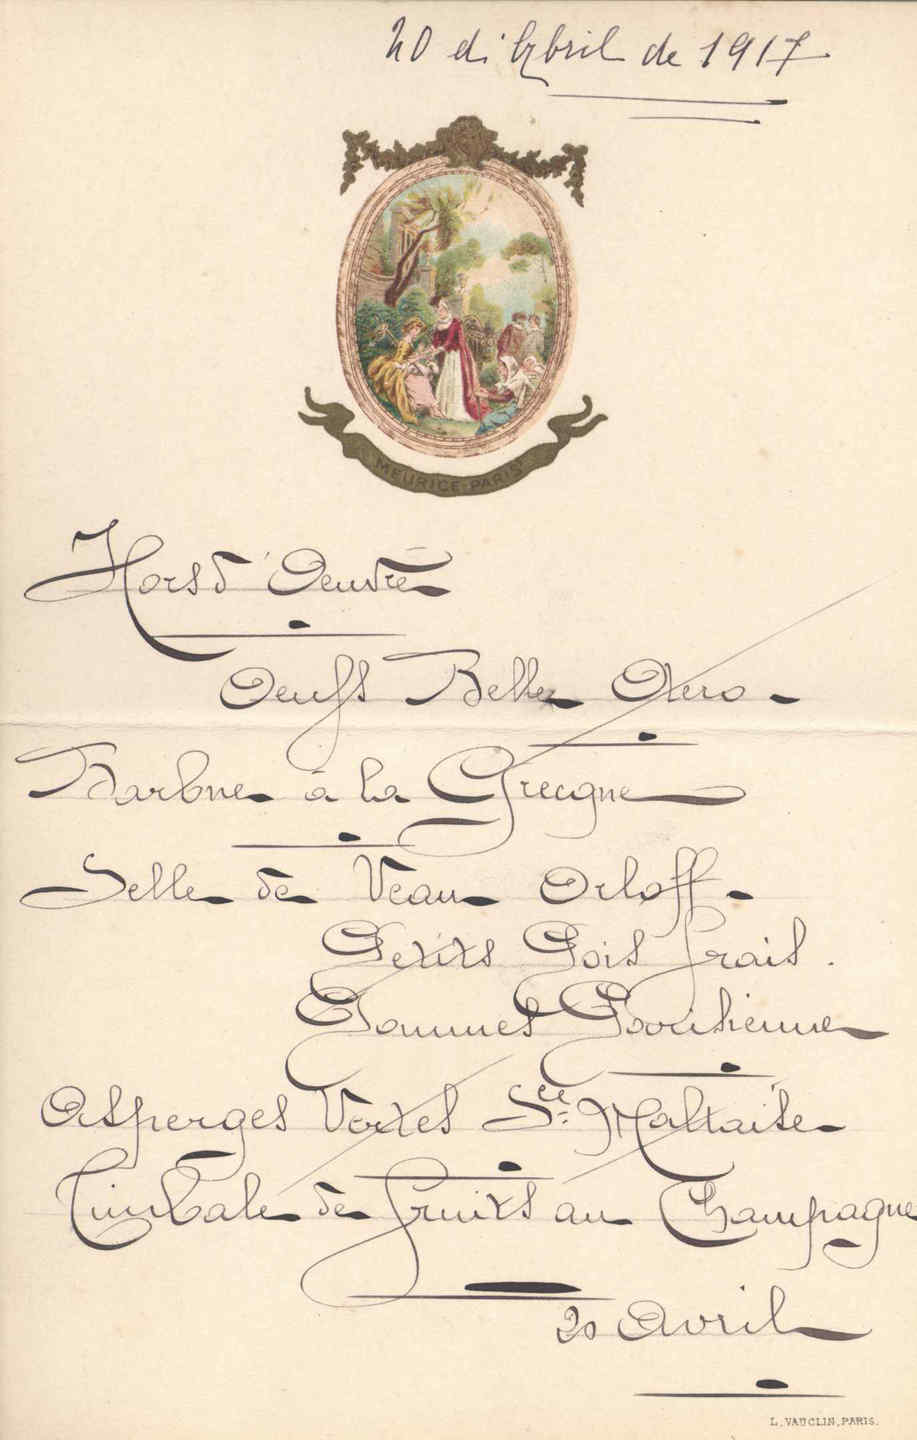 20 di Abril de 1917
MEURICE-PARIS
Hors d'Oeuvre
Oeufs Belle Otero
Barbue à la Grecque
Selle de Veau Orloff
Petits Pois frais.
Pommes Parisienne
Asperges Vertes Sce Maltaise
Timbale de fruits au Champagne
20 Avril
L. VAUCLIN, PARIS.